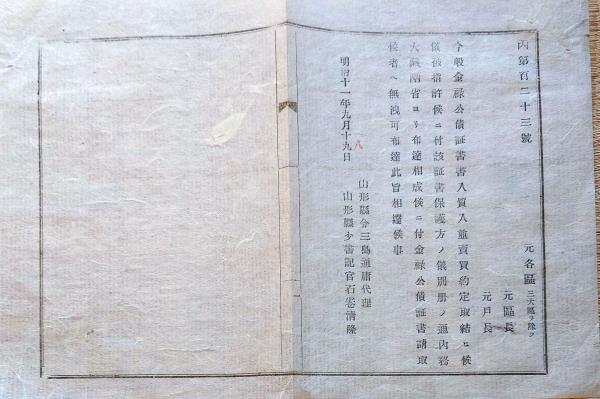 丙第百二十三號
元各區 三大區ヲ除ク
元區長
元戸長
今般金祿公債証書書入質入並賣買約定取結ヒ候
儀被指許候ニ付該証書保護方ノ儀別册ノ通內務
大藏兩省ヨリ布達相成候ニ付金祿公債証書請取
候者ヘ無洩可布達此旨相達候事
明治十一年九月十九日
八
山形縣令三島通庸代理
山形縣少書記官石卷清隆